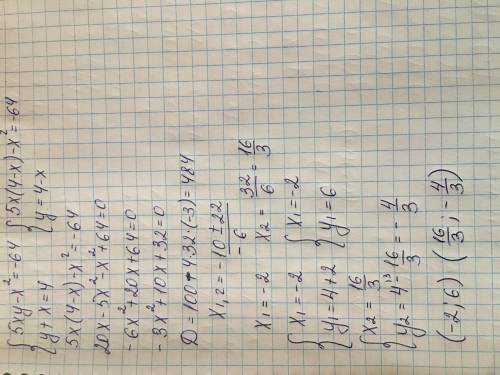 {5xy-x²=-64 {5x(4-x)-x²=-64
{y+x=4 {y=4-x
5x(4-x)-x²=-64
20x-5x²-x²+64=0
-6x²+20x+64=0
-3x²+10x+32=0
D=100-4·32·(-3)=484
x₁,₂=(-10±22)/-6
x₁=-2 x₂=32/6=16/3
{x₁=-2 {x₁=-2
{y₁=4+2 {y₁=6
{x₂=16/3
{y₂=4^{\3}-16/3=-4/3
(-2;6) (16/3;-4/3)